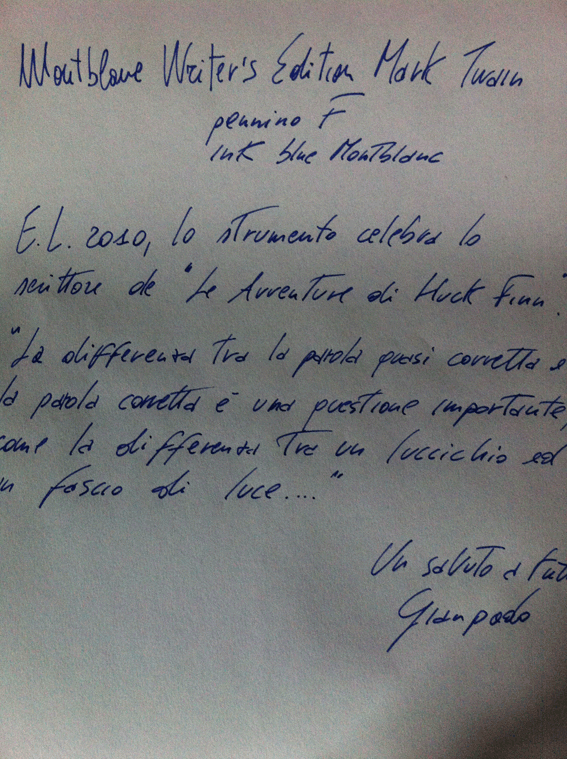 Montblanc Writer's Edition Mark Twain
pennino F
ink blue Montblanc
E.L. 2010, lo strumento celebra lo
scrittore de "Le Avventure di Huck Finn".
"La differenza tra la parola quasi corretta e
la parola corretta è una questione importante,
come la differenza tra un luccichio ed
un fascio di luce...."
Un saluto a tutt
Gianpaolo